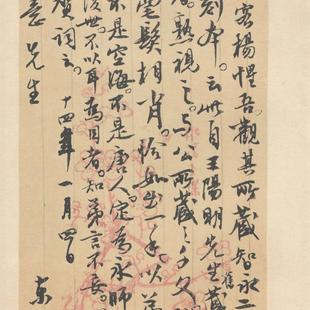 客楊惺吾。觀其所藏智永二
刻本。云此自王陽明先生舊藏
。熟視之。与公所藏
毫髮相肖。恰如出一手。以
不是空海。不是唐人。定為永師
後世。不以耳為目者。知弟言不妄。
賀詞云。
十四年一月四日
先生